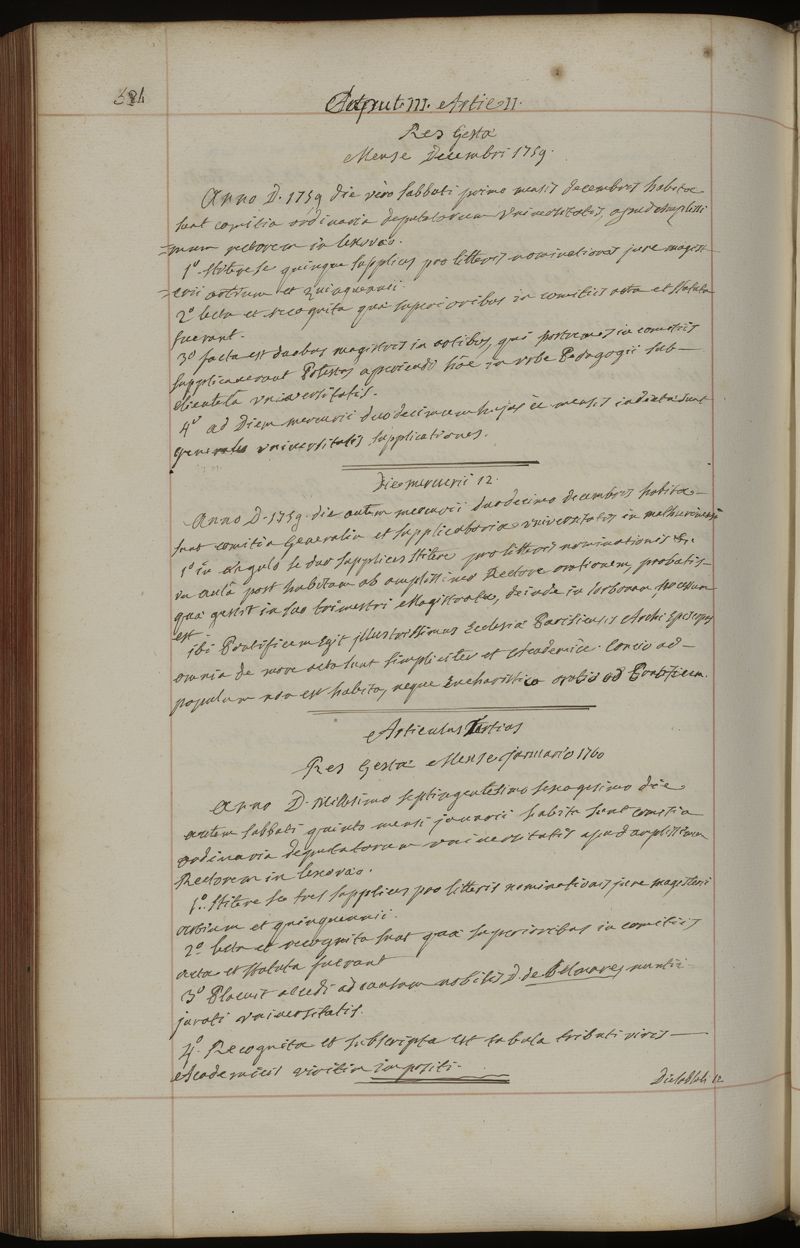 Caput III. Artic II.
Res Gestæ
Mense Decembri 1759.
Anno D. 1759 die vero sabbati primo mensis decembris habita
sunt comitia ordinaria deputatorum Universitatis, apud amplissi
=mum rectorem in lexovæo.
1º. Stitere se quinque supplices pro litteris nominationis jure magist
=erii artium et quinquennii.
2º lecta et recognita quæ superioribus in comitiis acta et statuta
fuerant.
3º facta est duobus magistris in artibus, qui postremis in comitiis
supplicaverant Potestas aperiendi hâc in urbe Pædagogii sub—
clientela universitatis.
4º ad Diem mercurii duodecimum hujusce mensis indictæ sunt
generales universitatis supplicationes.
Die mercurii 12.
Anno D. 1759. die autem mercurii duodecimo decembris habita—
sunt comitia Generalia et supplicatoria universitatis in mathurinensi
1º in angulo se duo supplices stitere pro litteris nominationis &c
in aulâ post habitam ab amplissimo Rectore orationem, probatis—
quæ gessit in suo trimestri Magistratu, deinde in sorbonam processum
est
ibi Pontificem Egit illustrissimus Ecclesiæ Parisiensis Archi Episcopus
omnia de more acta sunt simpliciter et Academice. Concio ad—
populum non est habita, neque Eucharistica oratio ad Pontificem.
Articulus Tertius
Res Gestæ Mense januario 1760
Anno D. Millesimo septingentesimo sexagesimo die
autem sabbati quinto mensi januarii habita sunt comitia
ordinaria deputatorum universitatis apud amplissimum
Rectorem in lexovæo.
1º. Stitere se tres supplices pro litteris nominationis jure magisterii
artium et quinquennii.
2º lecta et recognita sunt quæ superioribus in comitiis
acta et statuta fuerant
3º Placuit accedi ad causam nobilis D. de nuntii
jurati universitatis.
4º. Recognita et subscripta est tabula tributi viris—
Academicis impositi.
Die sabbati 12